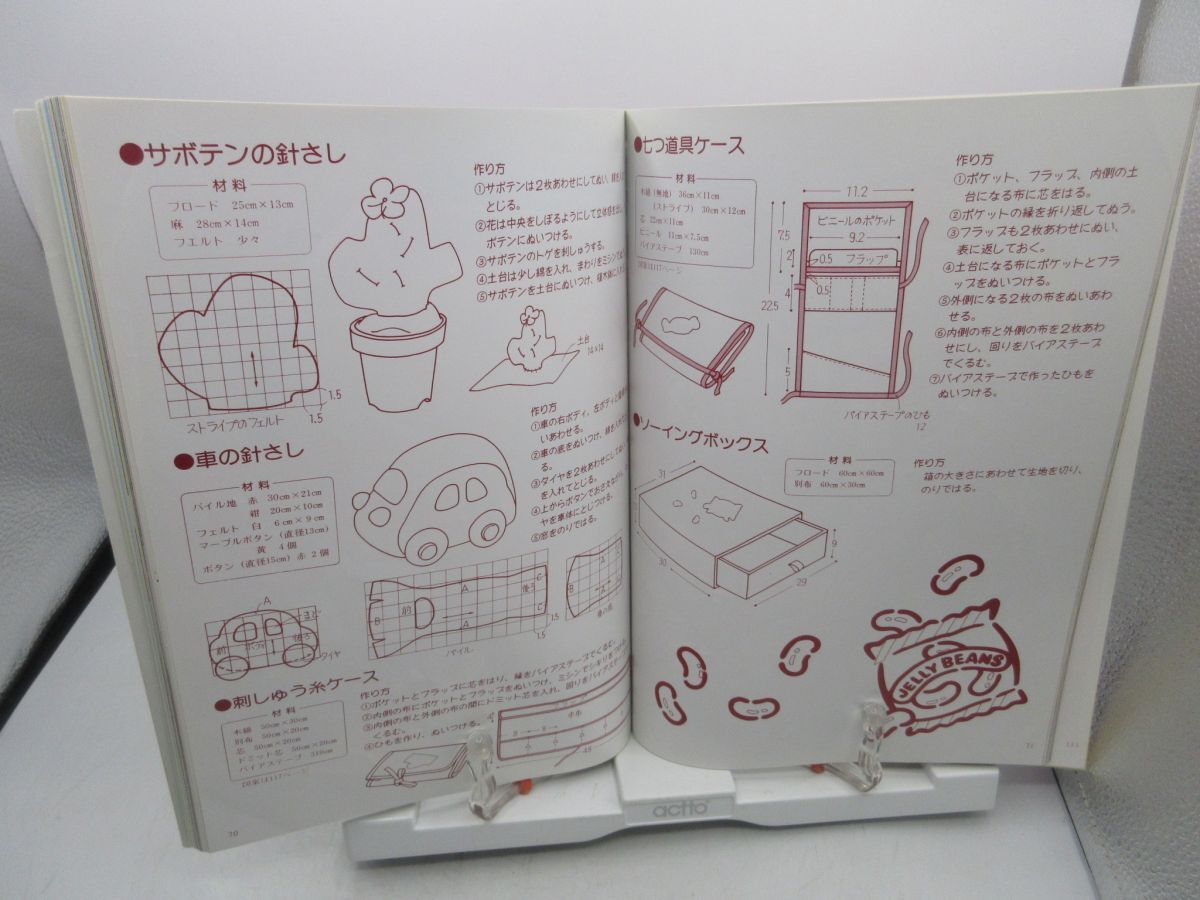 ●サボテンの針さし
材料
フロード 25cm×13cm
麻 28cm×14cm
フェルト 少々
作り方
①サボテンは2枚あわせにしてぬい、
とじる。
②花は中央をしぼるようにして立体感を
ボテンにぬいつける。
③サボテンのトゲを刺しゅうする。
④土台は少し綿を入れ、まわりをミシンで
⑤サボテンを土台にぬいつけ、植木鉢に入
土台
14×14
1.5
1.5
ストライプのフェルト
●車の針さし
材料
パイル地 赤 30cm×21cm
紺 20cm×10cm
フェルト 白 6cm×9cm
マーブルボタン (直径13cm)
黄 4個
ボタン (直径15cm) 赤 2個
作り方
①車の右ボディ、左ボディと
いあわせる。
②車の底をぬいつけ、綿を入れ
る。
③タイヤを2枚あわせにして
を入れてとじる。
④上からボタンでおさえながら
ヤを車体にとじつける。
⑤窓をのりではる。
A
前
後ろ
タイヤ
B
前
A
A
後ろ
C
C
1.5
1.5
パイル
B
A
A
C
車の底
●刺しゅう糸ケース
材料
木綿 50cm×30cm
別布 50cm×20cm
芯 50cm×20cm
ドミット芯 50cm×20cm
バイアステープ 310cm
図案は117ページ
作り方
①ポケットとフラップに芯をはり、縁をバイアステープでくるむ。
②内側の布にポケットとフラップをぬいつけ、ミシンでシキリをつける。
③内側の布と外側の布の間にドミット芯を入れ、回りをバイアステープで
くるむ。
④ひもを作り、ぬいつける。
48
70
●七つ道具ケース
材料
木綿 (無地) 36cm×11cm
(ストライプ) 30cm×12cm
芯 22cm×11cm
ビニール 11cm×7.5cm
バイアステープ 130cm
図案は117ページ
11.2
ビニールのポケット
9.2
7.5
2
0.5 フラップ
4
0.5
22.5
5
バイアステープのひも
12
作り方
①ポケット、フラップ、内側の土
台になる布に芯をはる。
②ポケットの縁を折り返してぬう。
③フラップも2枚あわせにぬい、
表に返しておく。
④土台になる布にポケットとフラ
ップをぬいつける。
⑤外側になる2枚の布をぬいあわ
せる。
⑥内側の布と外側の布を2枚あわ
せにし、回りをバイアステープ
でくるむ。
⑦バイアステープで作ったひもを
ぬいつける。
●ソーイングボックス
材料
フロード 60cm×60cm
別布 60cm×30cm
作り方
箱の大きさにあわせて生地を切り、
のりではる。
31
30
29
9
JELLY BEANS
71
actto